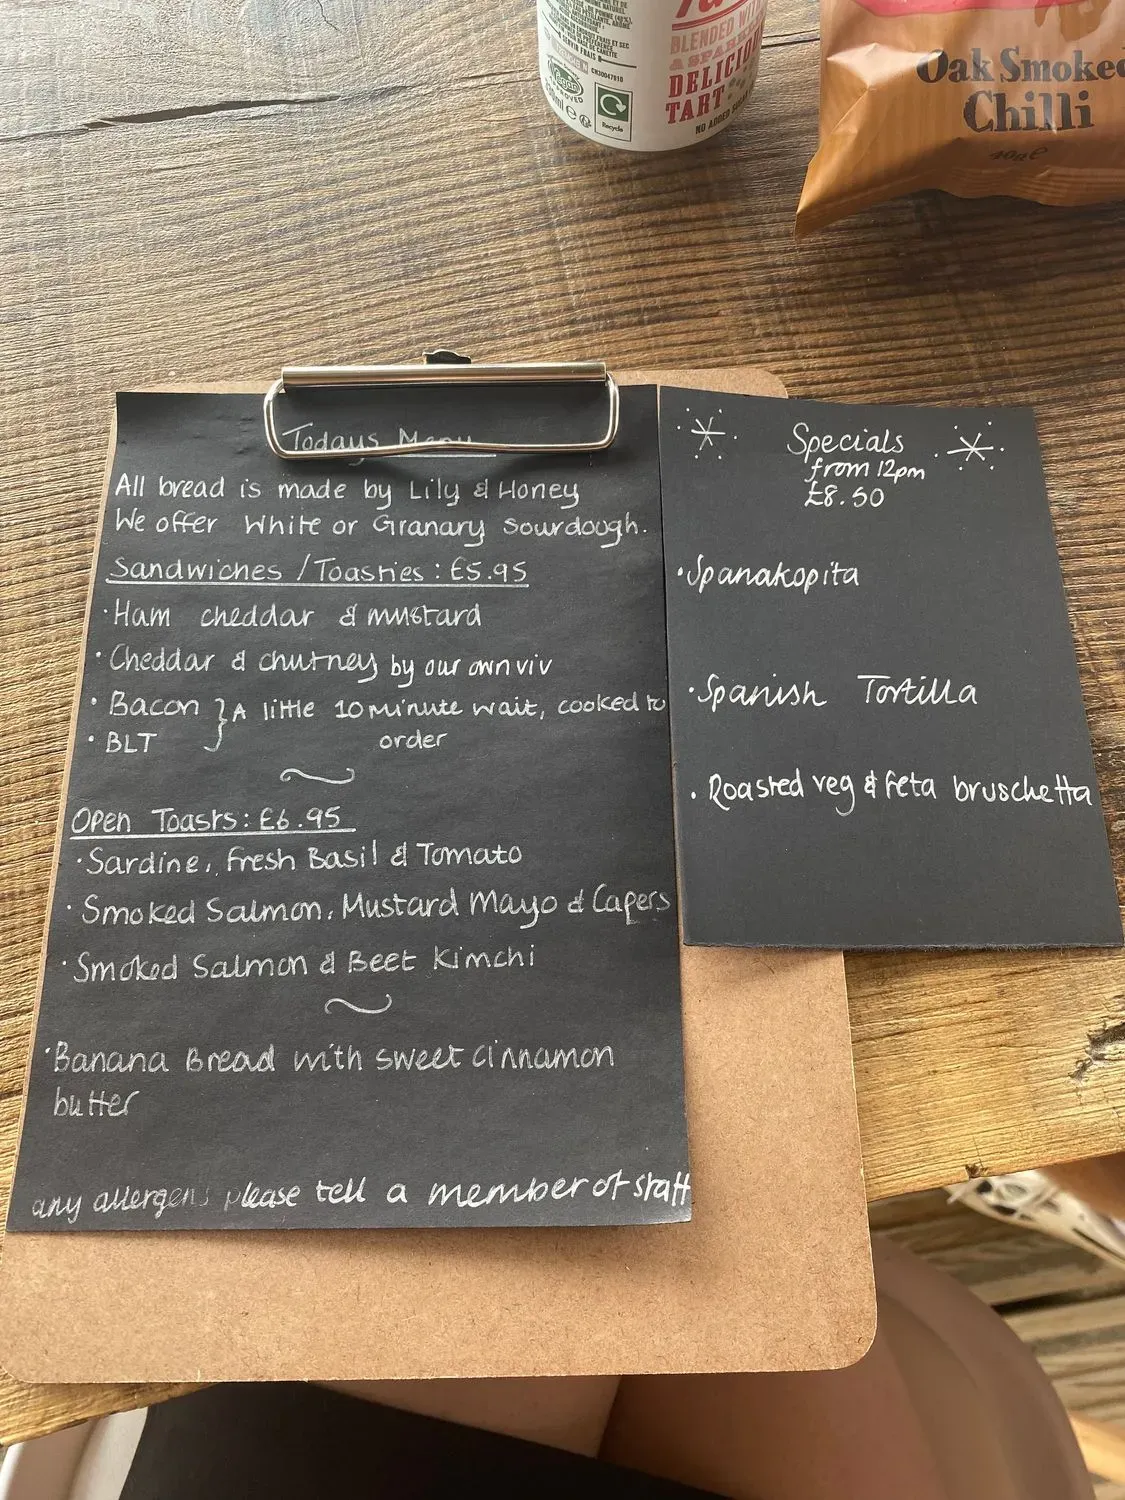 BLENDED WITH
A SPARK
DELICIOU
TART
NO ADDED
Vegan
APPROVED
Recycle
Oak Smoked
Chilli
40g e
Todays Menu
All bread is made by Lily & Honey
We offer White or Granary Sourdough.
Sandwiches / Toasties : £5.95
· Ham cheddar & mustard
· Cheddar & chutney by our own viv
· Bacon } A little 10 minute wait, cooked to
· BLT order
Open Toasts: £6.95
· Sardine, Fresh Basil & Tomato
· Smoked Salmon, Mustard Mayo & Capers
· Smoked Salmon & Beet Kimchi
· Banana Bread with sweet cinnamon
butter
any allergens please tell a member of staff
Specials
from 12pm
£8.50
· Spanakopita
· Spanish Tortilla
· Roasted veg & feta bruschetta